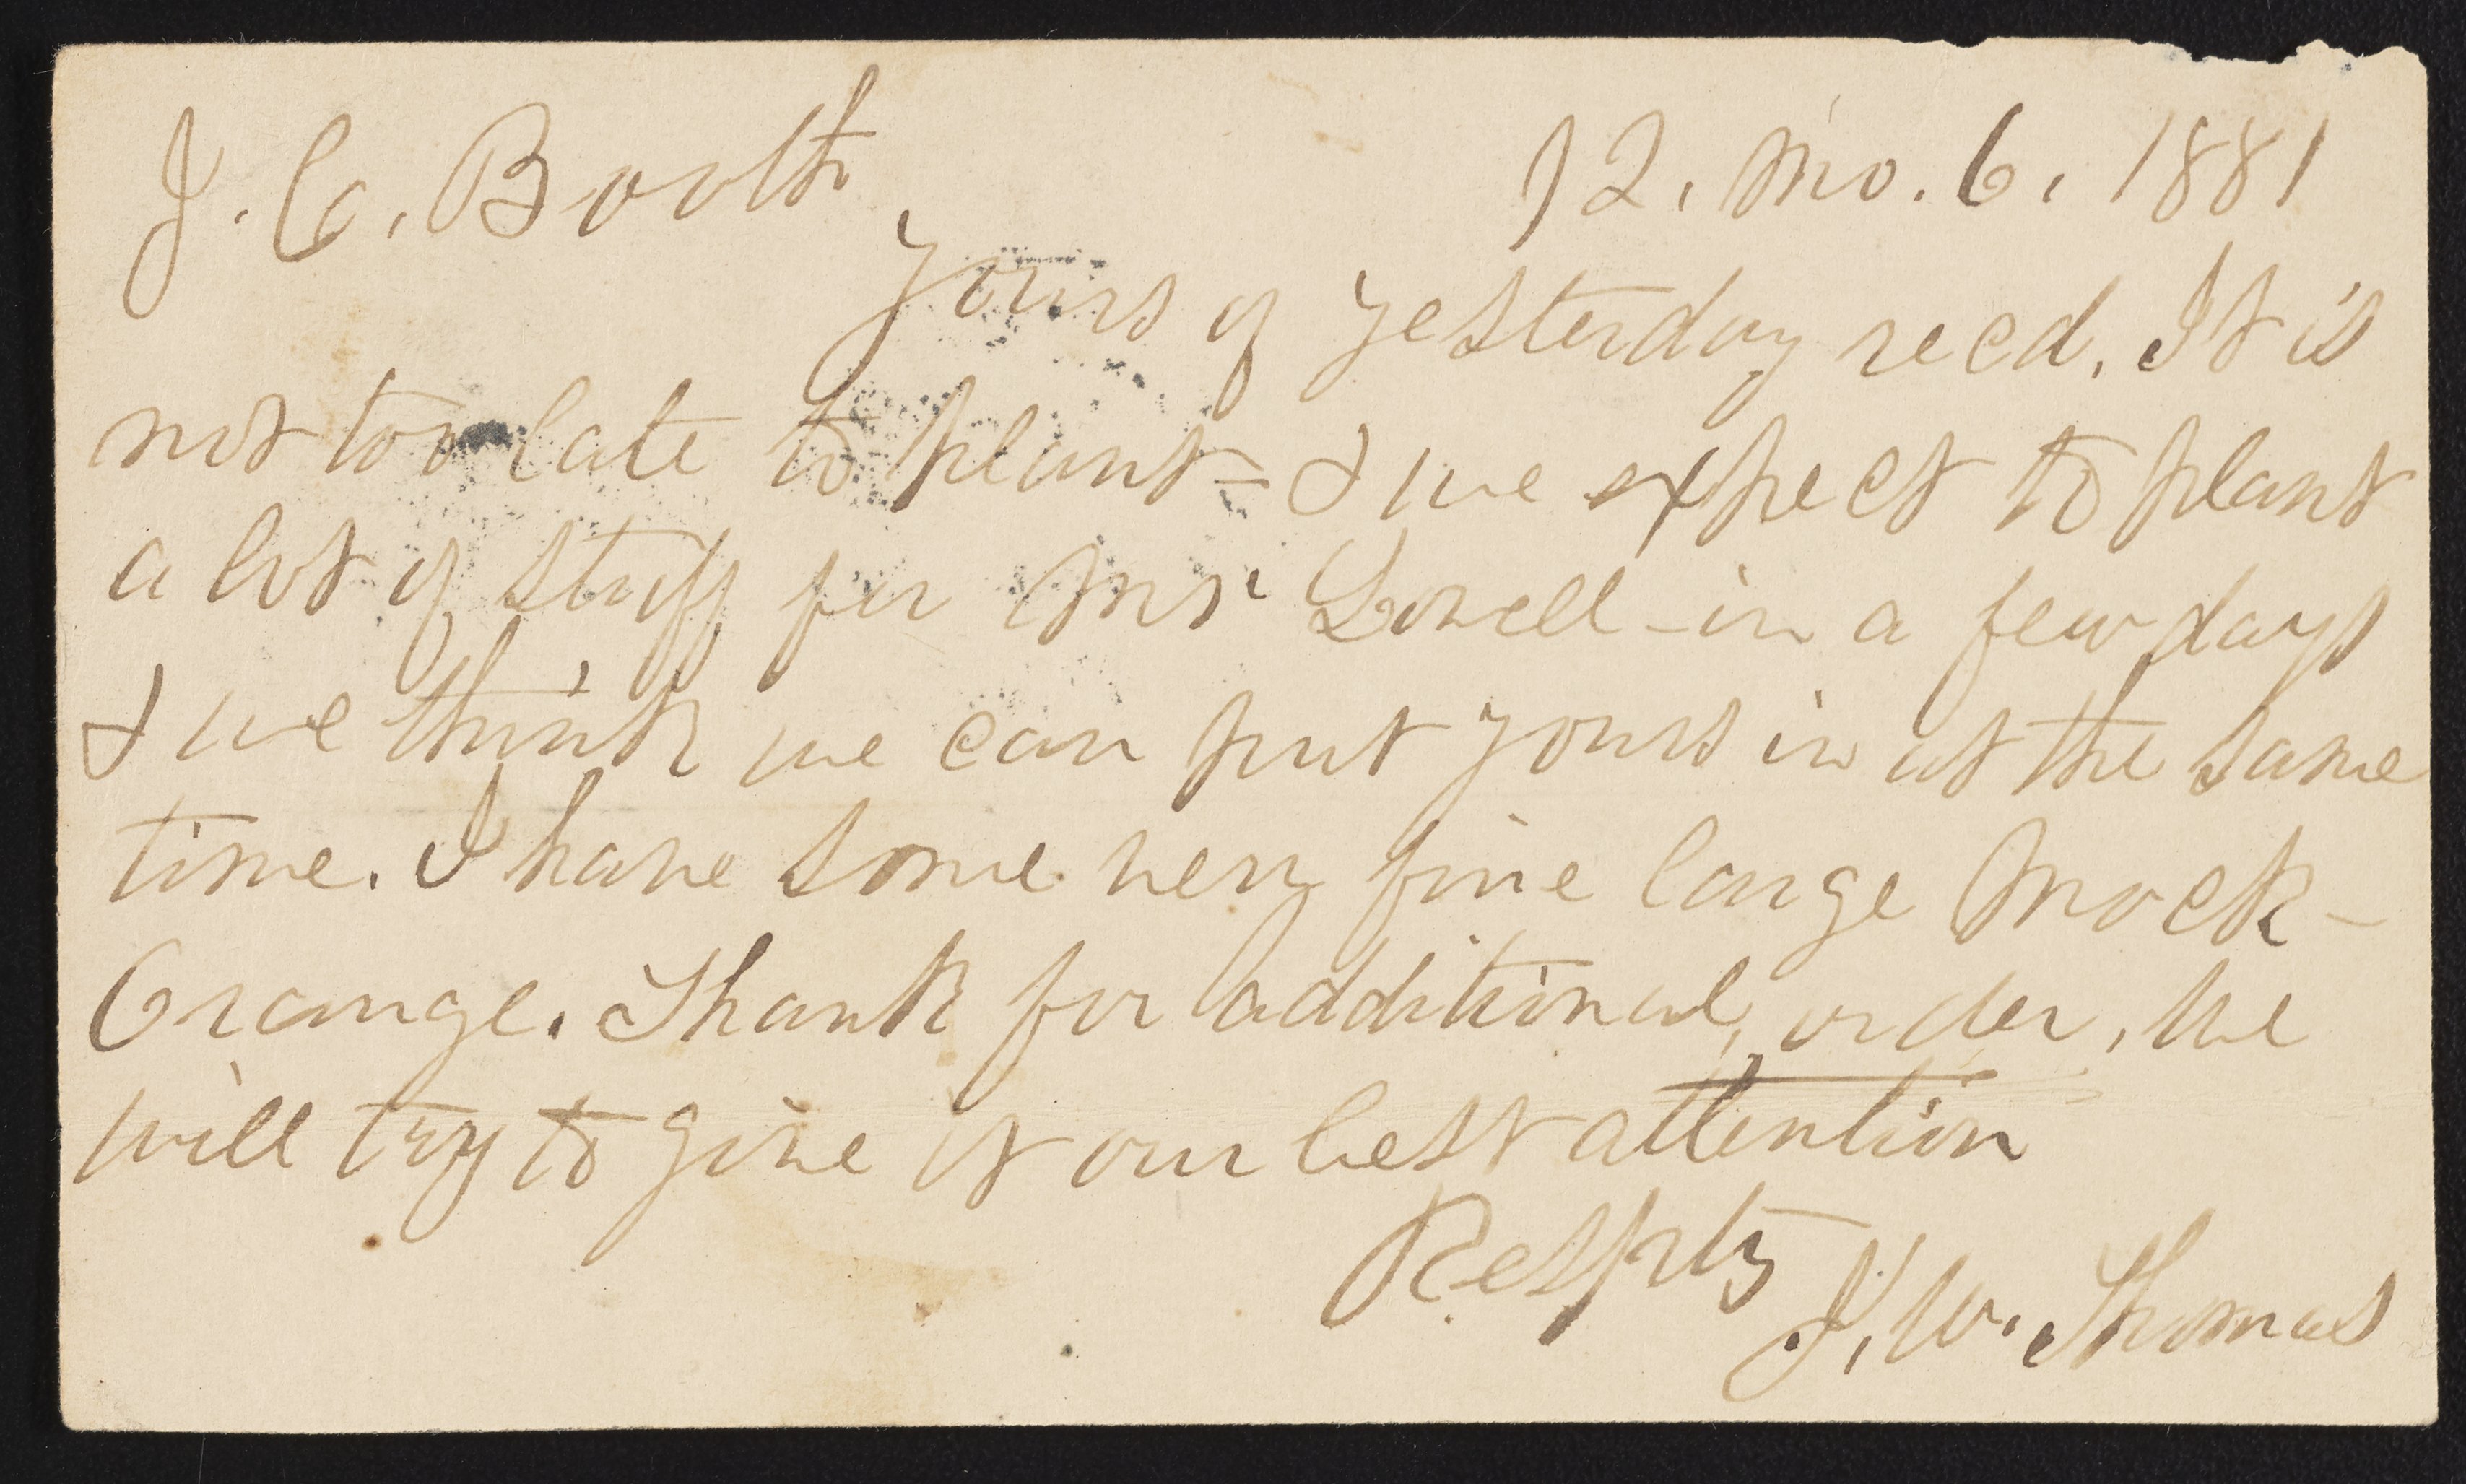 J. C. Booth, 12. Mo. 6. 1881
Yours of yesterday recd. It is
not too late to plant - & we expect to plant
a lot of stuff for Mr Lowell - in a few days
& we think we can put yours in at the same
time. I have some very fine large Mock-
Orange. Thank for additional order, We
will try to give it our best attention
Respty
J. W. Thomas